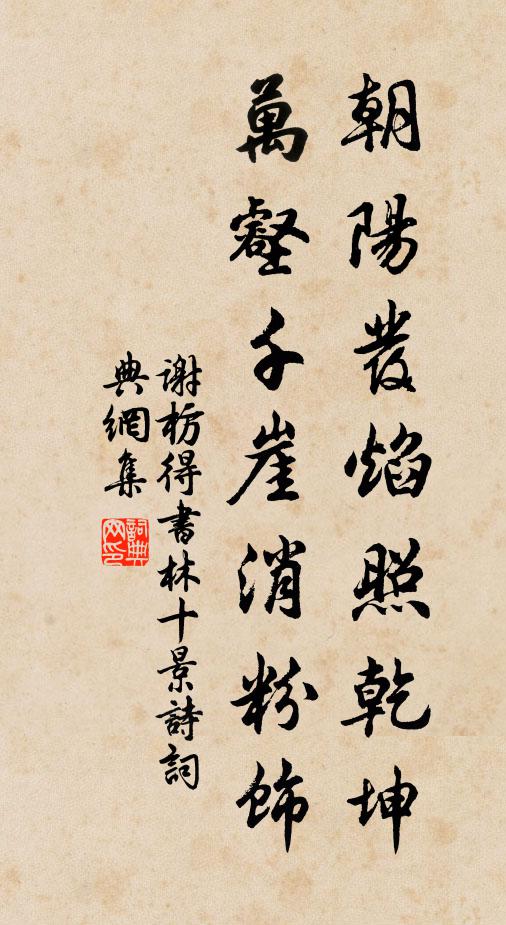 朝陽發焰照乾坤
萬壑千崖消粉飾
謝枋得書林十景詩詞
典網集
詞典網印